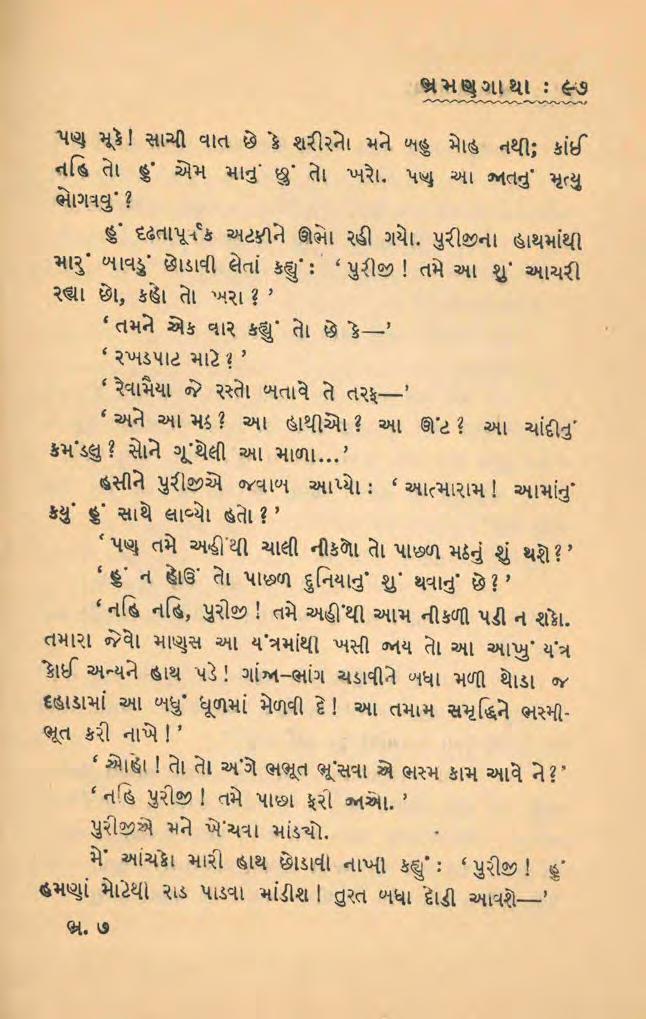 ભ્રમણગાથા : ૯૭
પણ મૂકે! સાચી વાત છે કે શરીરનો મને બહુ મોહ નથી; કાંઈ
નહિ તો હું એમ માનું છું તો ખરો. પણ આ જાતનું મૃત્યુ
ભોગવવું ?
હું દૃઢતાપૂર્વક અટકીને ઊભો રહી ગયો. પુરીજીના હાથમાંથી
મારું બાવડું છોડાવી લેતાં કહ્યું : ‘ પુરીજી ! તમે આ શું આચરી
રહ્યા છો, કહો તો ખરા ? ’
‘ તમને એક વાર કહ્યું તો છે કે—’
‘ રખડપાટ માટે ? ’
‘ રેવામૈયા જે રસ્તો બતાવે તે તરફ—’
‘ અને આ મઠ ? આ હાથીઓ ? આ ઊંટ ? આ ચાંદીનું
કમંડલુ ? સોને ગૂંથેલી આ માળા...’
હસીને પુરીજીએ જવાબ આપ્યો : ‘ આત્મારામ ! આમાંનું
કયું હું સાથે લાવ્યો હતો ? ’
‘ પણ તમે અહીંથી ચાલી નીકળો તો પાછળ મઠનું શું થશે ? ’
‘ હું ન હોઉં તો પાછળ દુનિયાનું શું થવાનું છે ? ’
‘ નહિ નહિ, પુરીજી ! તમે અહીંથી આમ નીકળી પડી ન શકો.
તમારા જેવો માણસ આ યંત્રમાંથી ખસી જાય તો આ આખું યંત્ર
કોઈ અન્યને હાથ પડે ! ગાંજા–ભાંગ ચડાવીને બધા મળી થોડા જ
દહાડામાં આ બધું ધૂળમાં મેળવી દે ! આ તમામ સમૃદ્ધિને ભસ્મી-
ભૂત કરી નાખે ! ’
‘ ઓહો ! તો તો અંગે ભભૂત ભૂંસવા એ ભસ્મ કામ આવે ને ? ’
‘ નહિ પુરીજી ! તમે પાછા ફરી જાઓ. ’
પુરીજીએ મને ખેંચવા માંડ્યો.
મેં આંચકો મારી હાથ છોડાવી નાખી કહ્યું : ‘ પુરીજી ! હું
હમણાં મોટેથી રાડ પાડવા માંડીશ ! તુરત બધા દોડી આવશે—’
ભ્ર. ૭